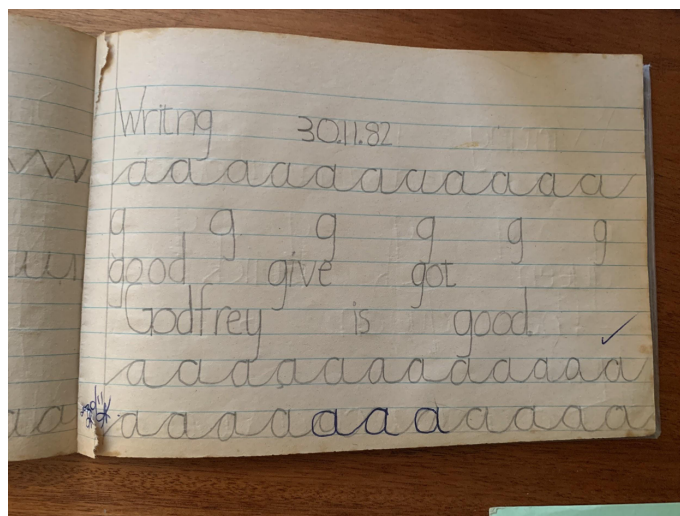 Writng 30.11.82
a a a a a a a a a a a
g g g g g g
good give got
Godfrey is good.
a a a a a a a a a a a a
a a a a a a a a a a a